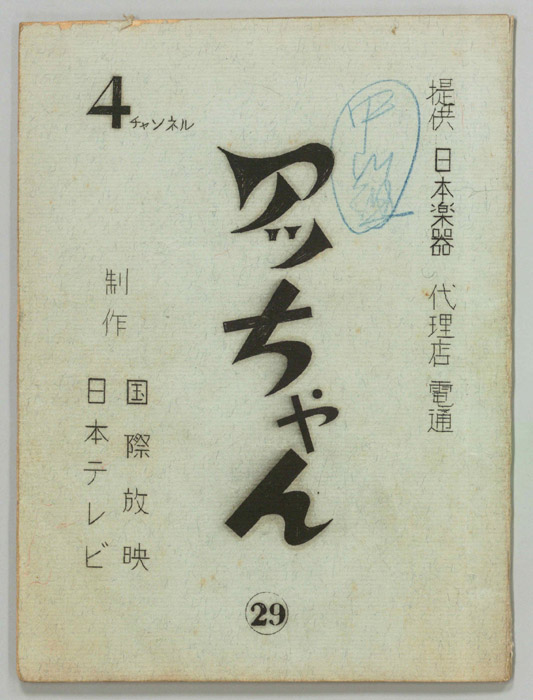 提供 日本楽器 代理店 電通
4チャンネル
アッちゃん
制作
国際放映
日本テレビ
29